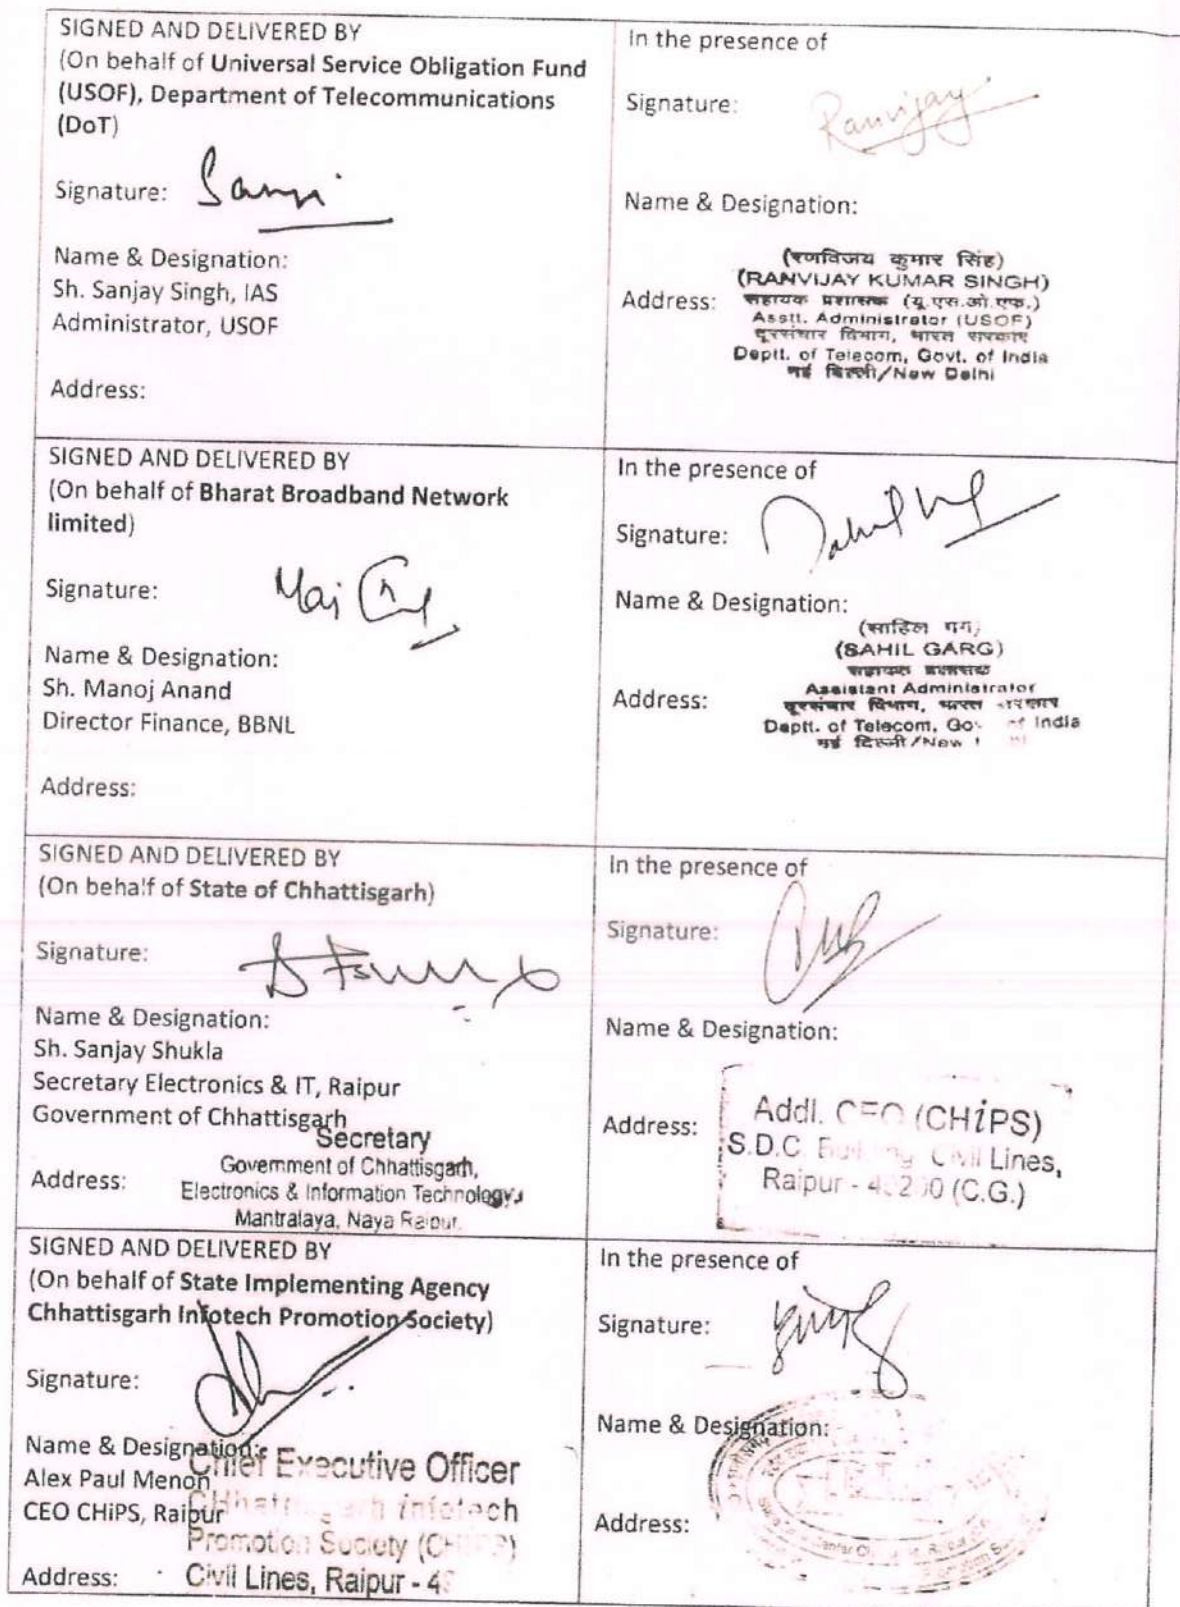 SIGNED AND DELIVERED BY
(On behalf of Universal Service Obligation Fund
(USOF), Department of Telecommunications
(DoT)
Signature:
Name & Designation:
Sh. Sanjay Singh, IAS
Administrator, USOF
Address:
In the presence of
Signature: Ranvijay
Name & Designation:
(रणविजय कुमार सिंह)
(RANVIJAY KUMAR SINGH)
Address:
सहायक प्रशासक (यू.एस.ओ.एफ.)
Asstt. Administrator (USOF)
दूरसंचार विभाग, भारत सरकार
Deptt. of Telecom, Govt. of India
नई दिल्ली/New Delhi
SIGNED AND DELIVERED BY
(On behalf of Bharat Broadband Network
limited)
Signature:
Name & Designation:
Sh. Manoj Anand
Director Finance, BBNL
Address:
In the presence of
Signature:
Name & Designation:
(साहिल गर्ग)
(SAHIL GARG)
सहायक प्रशासक
Address:
Assistant Administrator
दूरसंचार विभाग, भारत सरकार
Deptt. of Telecom, Go of India
नई दिल्ली/New
SIGNED AND DELIVERED BY
(On behalf of State of Chhattisgarh)
Signature:
Name & Designation:
Sh. Sanjay Shukla
Secretary Electronics & IT, Raipur
Government of Chhattisgarh
Secretary
Government of Chhattisgarh,
Address:
Electronics & Information Technology,
Mantralaya, Naya Raipur.
In the presence of
Signature:
Name & Designation:
Address:
Addl. CEO (CHiPS)
S.D.C. Building Civil Lines,
Raipur - (C.G.)
SIGNED AND DELIVERED BY
(On behalf of State Implementing Agency
Chhattisgarh Infotech Promotion Society)
Signature:
Name & Designation:
Chief Executive Officer
Alex Paul Menon
Chhattisgarh infotech
CEO CHiPS, Raipur
Promotion Society (CHiPS)
Address:
Civil Lines, Raipur - 49
In the presence of
Signature:
Name & Designation:
Address: